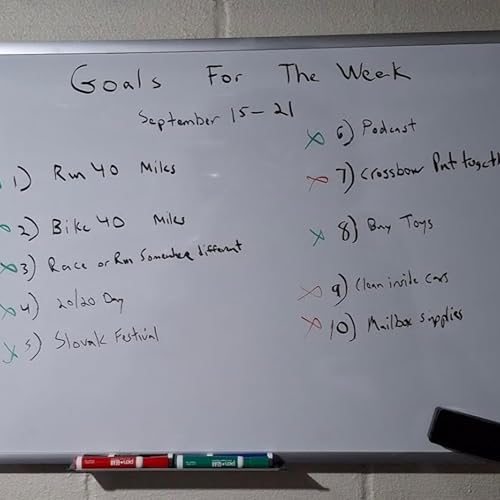 Goals For The Week
September 15-21
1) Run 40 Miles
2) Bike 40 Miles
3) Race or Run Somewhere different
4) 20/20 Day
5) Slovak Festival
6) Podcast
7) Crossbow Put togeth
8) Buy Toys
9) Clean inside cars
10) Mailbox supplies